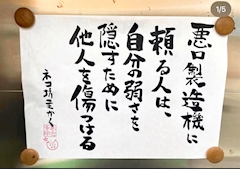 1/5
悪口製造機に
頼る人は、
自分の弱さを
隠すために
他人を傷つける
ネコ坊主かく